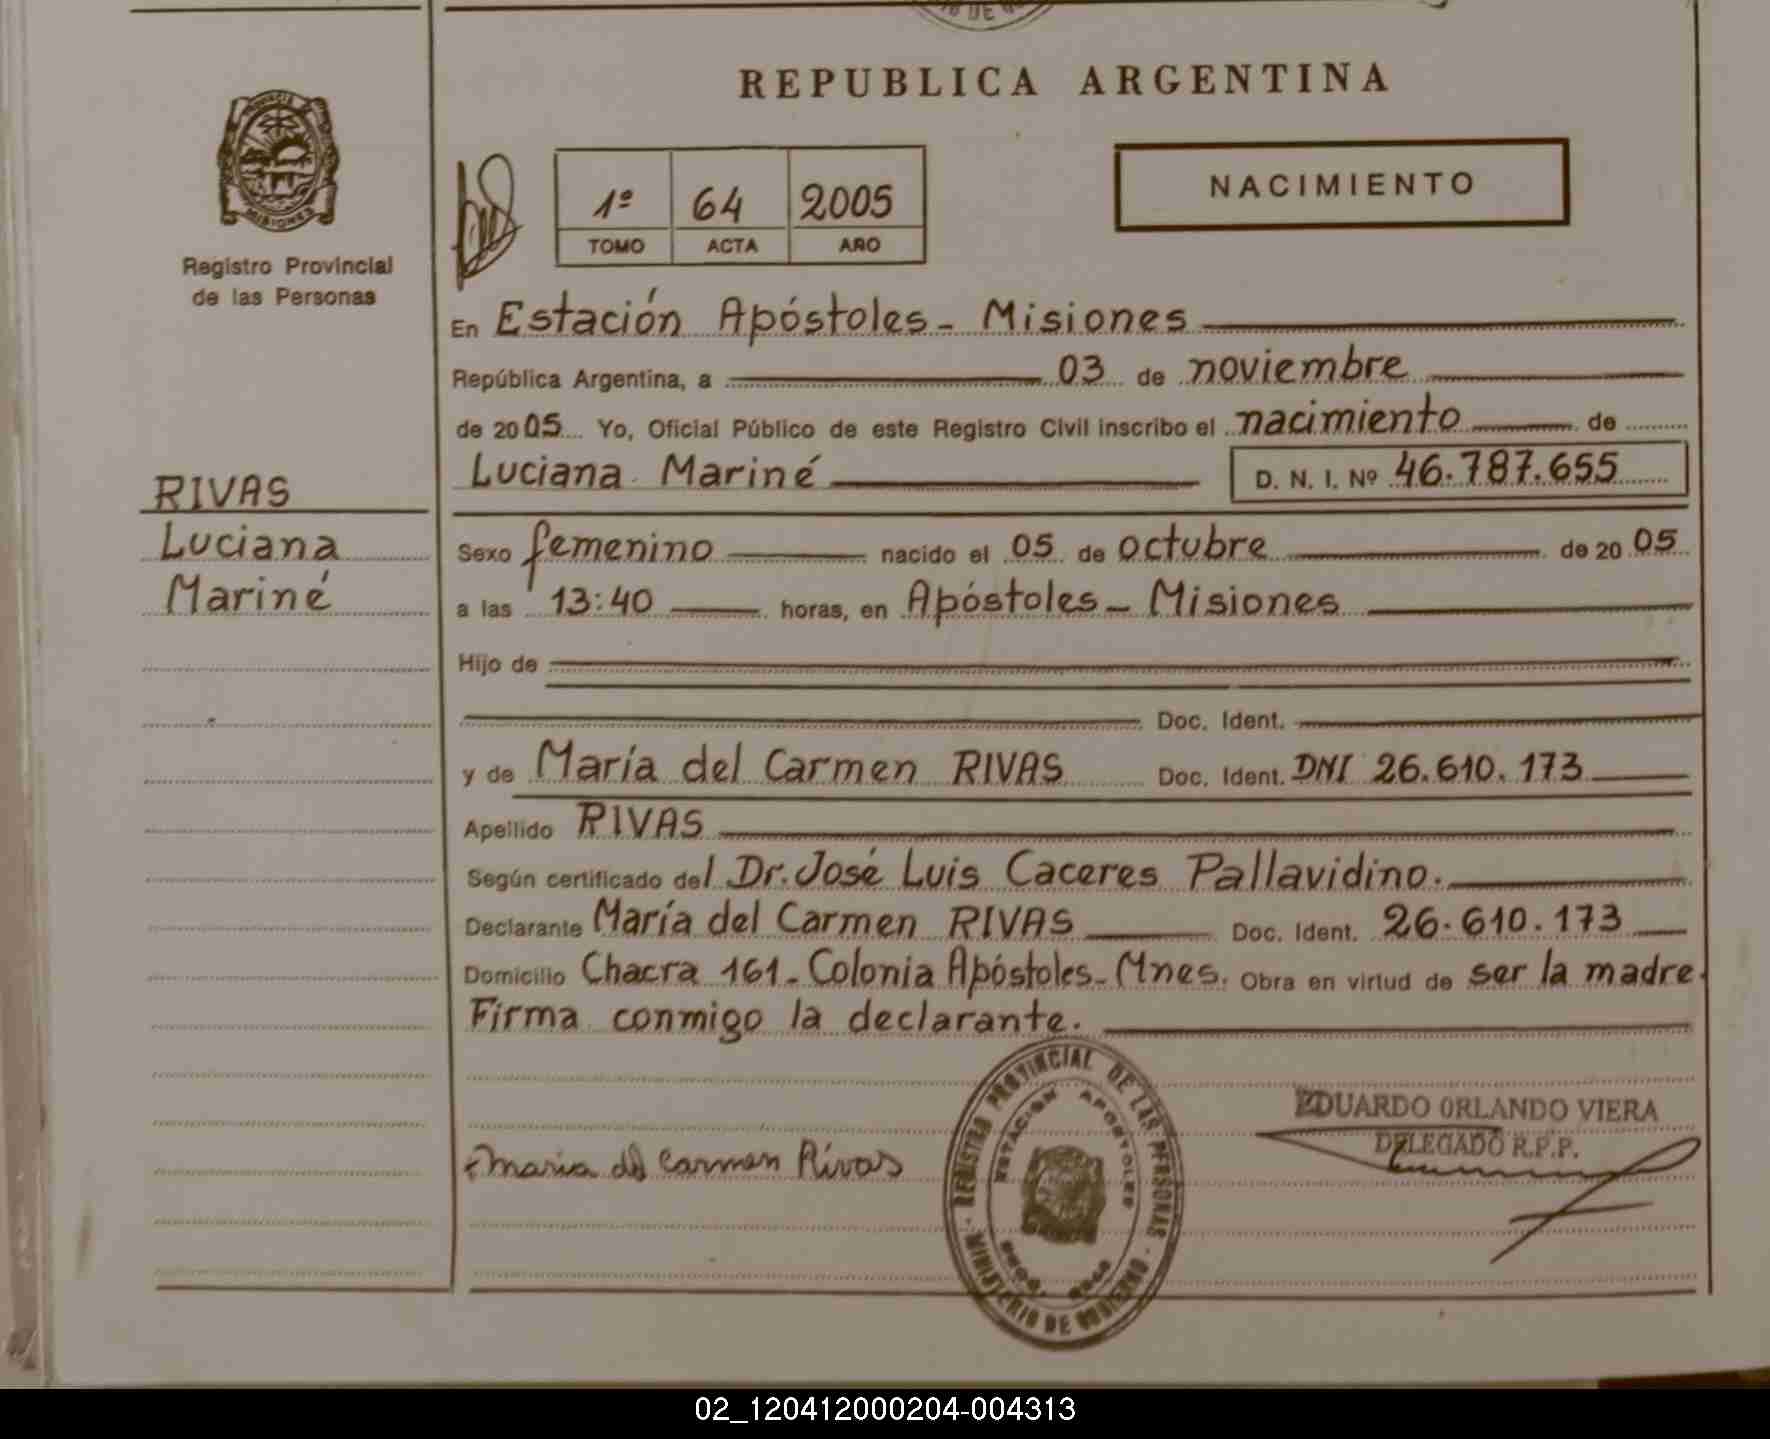 REPUBLICA ARGENTINA
Registro Provincial
de las Personas
1º 64 2005
TOMO ACTA AÑO
NACIMIENTO
En Estación Apóstoles - Misiones
República Argentina, a 03 de noviembre
de 2005 Yo, Oficial Público de este Registro Civil inscribo el nacimiento de
Luciana Mariné D. N. I. Nº 46.787.655
RIVAS
Luciana
Mariné
Sexo femenino nacido el 05 de octubre de 2005
a las 13:40 horas, en Apóstoles - Misiones
Hijo de
Doc. Ident.
y de María del Carmen RIVAS Doc. Ident. DNI 26.610.173
Apellido RIVAS
Según certificado del Dr. José Luis Caceres Pallavidino.
Declarante María del Carmen RIVAS Doc. Ident. 26.610.173
Domicilio Chacra 161 - Colonia Apóstoles - Mnes. Obra en virtud de ser la madre.
Firma conmigo la declarante.
Maria del Carmen Rivas
REGISTRO PROVINCIAL DE LAS PERSONAS
ESTACION APOSTOLES
MINISTERIO DE GOBIERNO
EDUARDO ORLANDO VIERA
DELEGADO R.P.P.
02_120412000204-004313